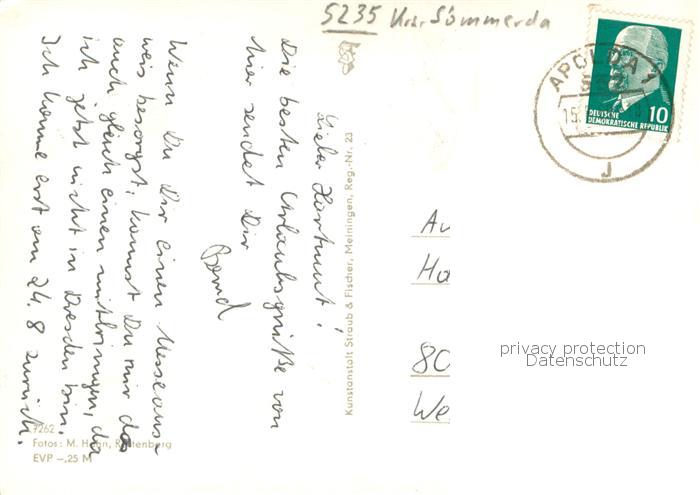 5235 Krs. Sömmerda
APOLDA 1
10
DEUTSCHE
DEMOKRATISCHE REPUBLIK
15.
J
Lieber Hartmut!
Die besten Urlaubsgrüße von
hier sendet Dir
Bernd
Wenn Du Dir einen Messeaus-
weis besorgst, kannst Du mir das
auch gleich einen mitbringen, da
ich jetzt nicht in Dresden bin.
Ich komme erst am 24. 8 zurück.
Kunstanstalt Straub & Fischer, Meiningen, Reg.-Nr. 23
An
Ha
80
We
privacy protection
Datenschutz
7262
Fotos: M. Hahn, Rastenberg
EVP –,25 M